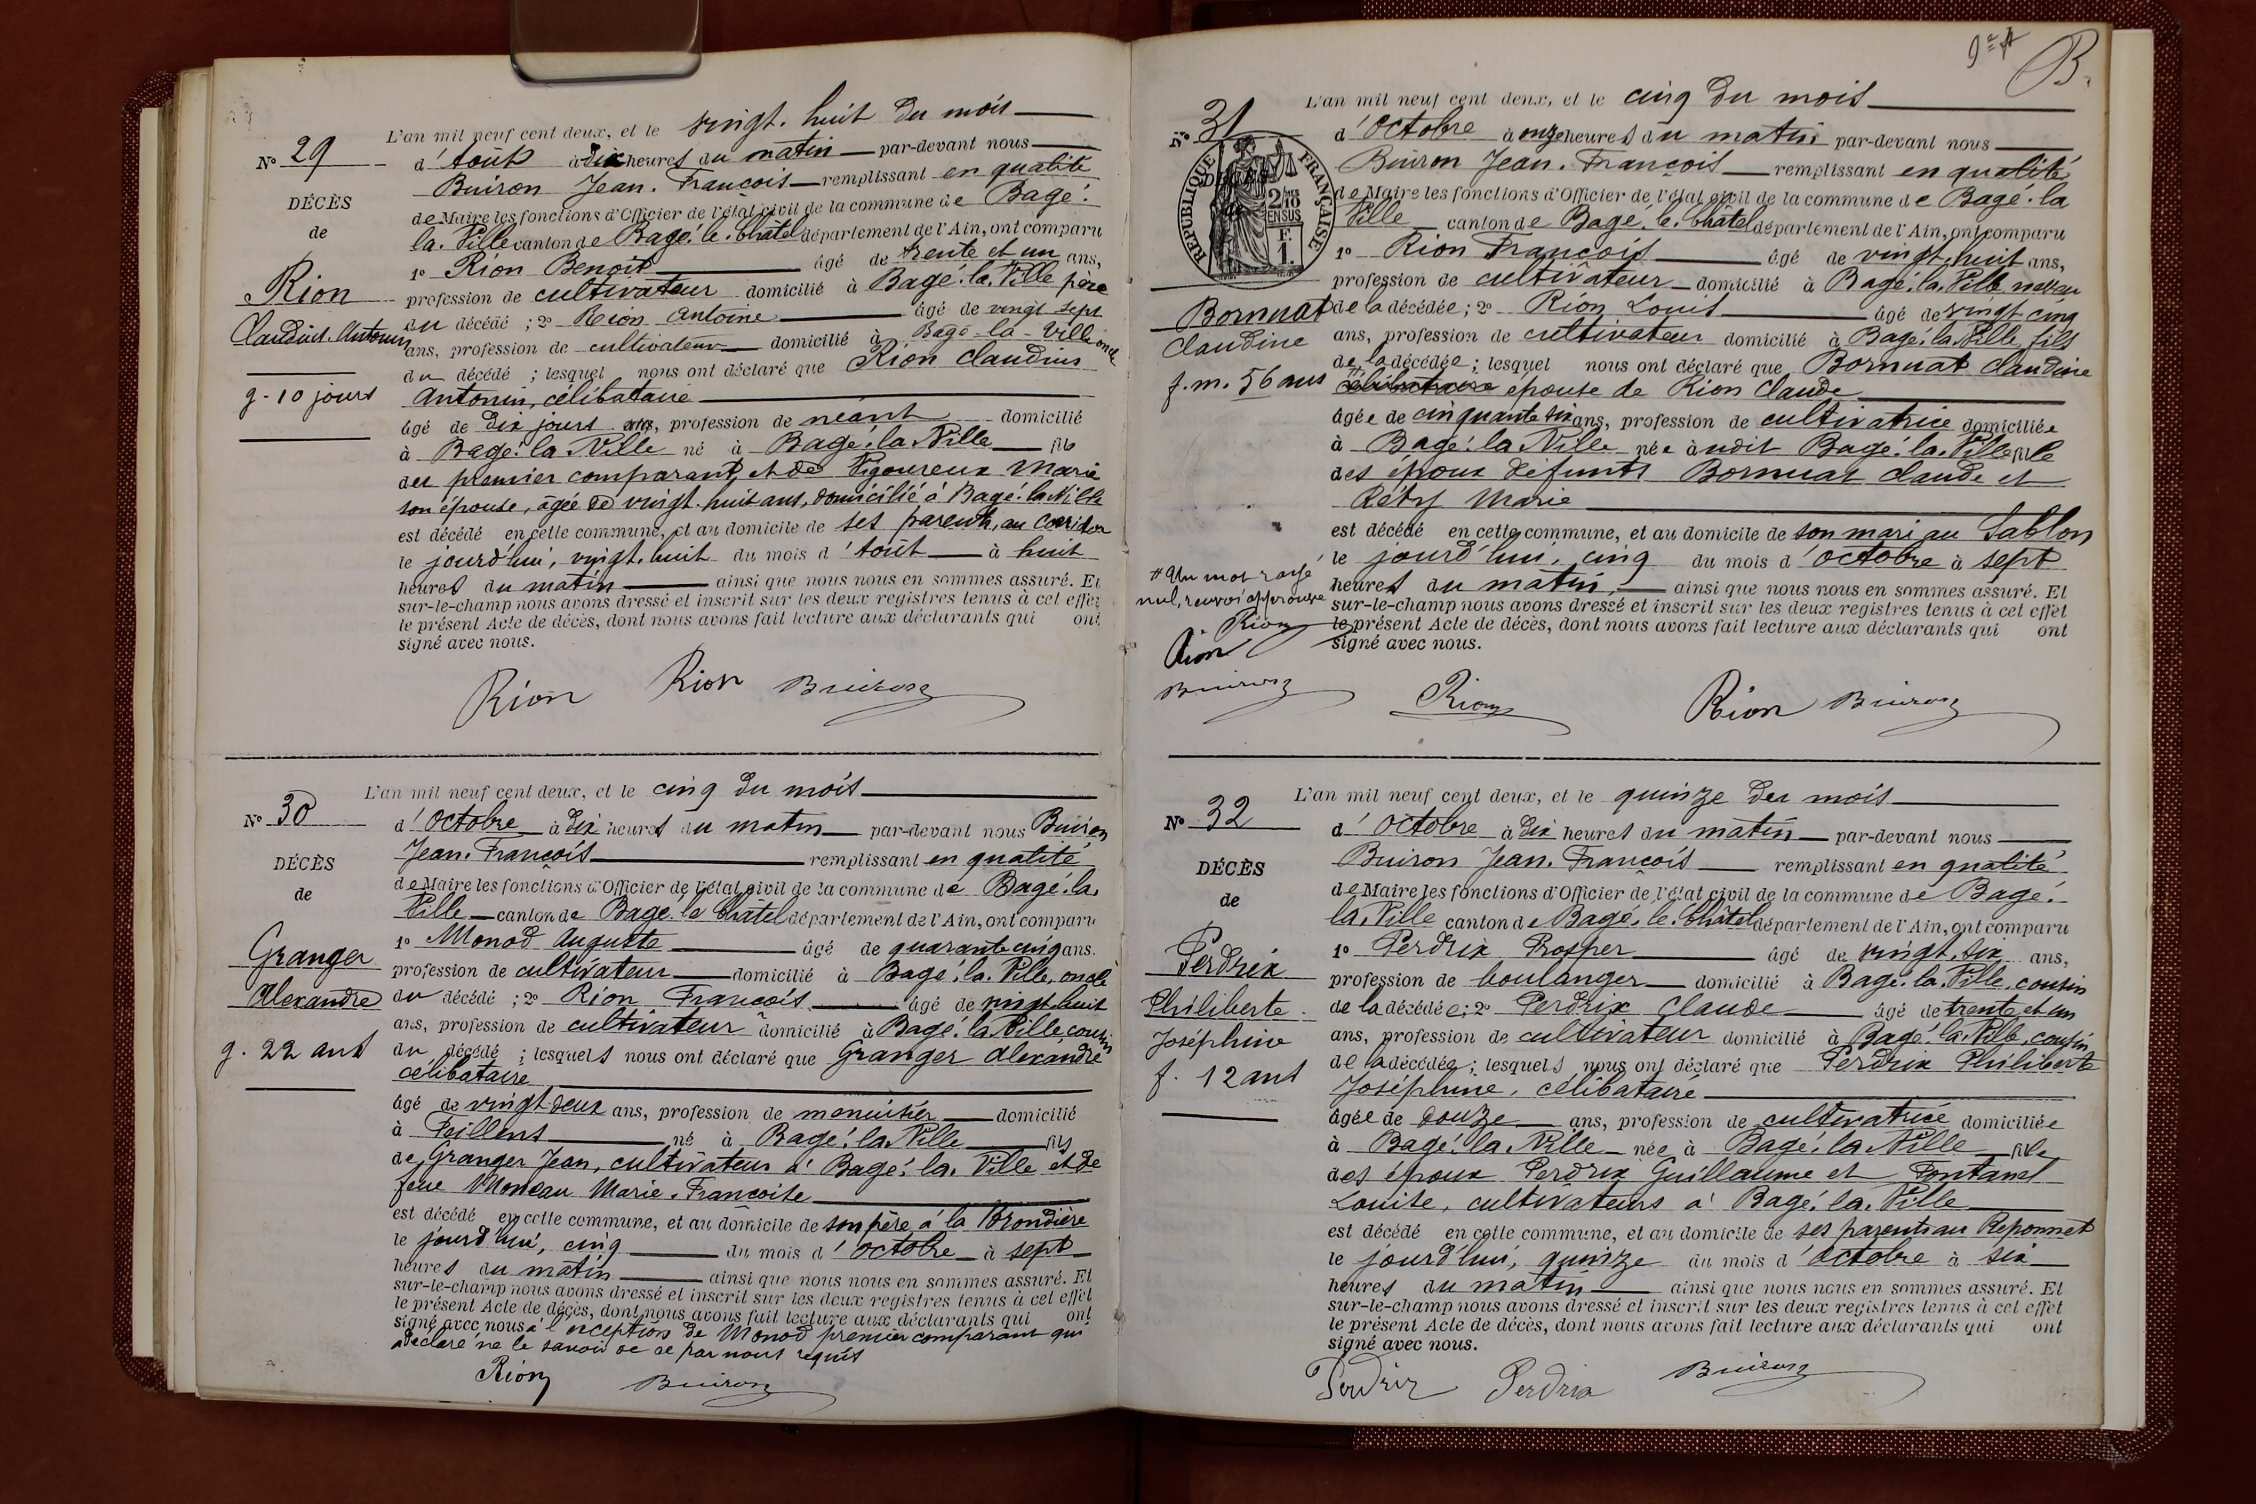 L'an mil neuf cent deux, et le vingt-huit du mois
N° 29
d'août à dix heures du matin par-devant nous
Buiron Jean-François remplissant en qualité
DÉCÈS
de Maire les fonctions d'Officier de l'état civil de la commune de Bagé-
de
la-Ville canton de Bagé-le-Châtel département de l'Ain, ont comparu
1° Rion Benoît âgé de trente et un ans,
Rion
profession de cultivateur domicilié à Bagé-la-Ville père
Claudius-Antonin
du décédé ; 2° Rion Antoine âgé de vingt sept
ans, profession de cultivateur domicilié à Bagé-la-Ville oncle
du décédé ; lesquel nous ont déclaré que Rion Claudius
g - 10 jours
Antonin, célibataire
âgé de dix jours ans, profession de néant domicilié
à Bagé-la-Ville né à Bagé-la-Ville fils
du premier comparant et de Vigoureux Marie
son épouse, âgée de vingt-huit ans, domicilié à Bagé-la-Ville
est décédé en cette commune, et au domicile de ses parents, au Corridor
le jourd'hui, vingt-huit du mois d'août à huit
heures du matin ainsi que nous nous en sommes assuré. Et
sur-le-champ nous avons dressé et inscrit sur les deux registres tenus à cet effet
le présent Acte de décès, dont nous avons fait lecture aux déclarants qui ont
signé avec nous.
Rion Rion Buiron
L'an mil neuf cent deux, et le cinq du mois
N° 30
d'octobre à dix heures du matin par-devant nous Buiron
Jean-François remplissant en qualité
DÉCÈS
de Maire les fonctions d'Officier de l'état civil de la commune de Bagé-la-
de
Ville canton de Bagé-le-Châtel département de l'Ain, ont comparu
1° Monod Auguste âgé de quarante cinq ans.
Granger
profession de cultivateur domicilié à Bagé-la-Ville, oncle
Alexandre
du décédé ; 2° Rion François âgé de vingt-huit
ans, profession de cultivateur domicilié à Bagé-la-Ville, cousin
g. 22 ans
du décédé ; lesquels nous ont déclaré que Granger Alexandre
célibataire
âgé de vingt-deux ans, profession de menuisier domicilié
à Feillens né à Bagé-la-Ville fils
de Granger Jean, cultivateur à Bagé-la-Ville et de
feue Marie-Françoise
est décédé en cette commune, et au domicile de son père à la Brondière
le jourd'hui, cinq du mois d'octobre à sept
heures du matin ainsi que nous nous en sommes assuré. Et
sur-le-champ nous avons dressé et inscrit sur les deux registres tenus à cet effet
le présent Acte de décès, dont nous avons fait lecture aux déclarants qui ont
signé avec nous à l'exception de Monod premier comparant qui
a déclaré ne le savoir de ce par nous requis
Rion Buiron
B
L'an mil neuf cent deux, et le cinq du mois
N° 31
d'octobre à onze heures du matin par-devant nous
Buiron Jean-François remplissant en qualité
RÉPUBLIQUE FRANÇAISE
2/10 EN SUS
F. 1.
DÉCÈS
de
de Maire les fonctions d'Officier de l'état civil de la commune de Bagé-la
Ville canton de Bagé-le-Châtel département de l'Ain, ont comparu
1° Rion François âgé de vingt-huit ans,
profession de cultivateur domicilié à Bagé-la-Ville neveu
Bornuat
de la décédée ; 2° Rion Louis âgé de vingt cinq
Claudine
ans, profession de cultivateur domicilié à Bagé-la-Ville fils
de la décédée ; lesquel nous ont déclaré que Bornuat Claudine
f. m. 56 ans
célibataire épouse de Rion Claude
âgée de cinquante six ans, profession de cultivatrice domiciliée
à Bagé-la-Ville née à udit Bagé-la-Ville fille
des époux défunts Bornuat Claude et
Réty Marie
est décédé en cette commune, et au domicile de son mari au Sablon
le jourd'hui, cinq du mois d'octobre à sept
heures du matin, ainsi que nous nous en sommes assuré. Et
sur-le-champ nous avons dressé et inscrit sur les deux registres tenus à cet effet
le présent Acte de décès, dont nous avons fait lecture aux déclarants qui ont
signé avec nous.
# Un mot rayé
nul, renvoi approuvé
Rion
Rion
Buiron
Rion Rion Buiron
L'an mil neuf cent deux, et le quinze du mois
N° 32
d'octobre à dix heures du matin par-devant nous
Buiron Jean-François remplissant en qualité
DÉCÈS
de Maire les fonctions d'Officier de l'état civil de la commune de Bagé-
de
la-Ville canton de Bagé-le-Châtel département de l'Ain, ont comparu
1° Perdrix Prosper âgé de vingt-six ans,
Perdrix
profession de boulanger domicilié à Bagé-la-Ville, cousin
Philiberte
de la décédée ; 2° Perdrix Claude âgé de trente et un
Joséphine
ans, profession de cultivateur domicilié à Bagé-la-Ville, cousin
de la décédée ; lesquels nous ont déclaré que Perdrix Philiberte
f. 12 ans
Joséphine, célibataire
âgée de douze ans, profession de cultivatrice domiciliée
à Bagé-la-Ville née à Bagé-la-Ville fille
des époux Perdrix Guillaume et Pontanel
Louise, cultivateurs à Bagé-la-Ville
est décédé en cette commune, et au domicile de ses parents au Reponnet
le jourd'hui, quinze du mois d'octobre à six
heures du matin ainsi que nous nous en sommes assuré. Et
sur-le-champ nous avons dressé et inscrit sur les deux registres tenus à cet effet
le présent Acte de décès, dont nous avons fait lecture aux déclarants qui ont
signé avec nous.
Perdrix Perdrix Buiron